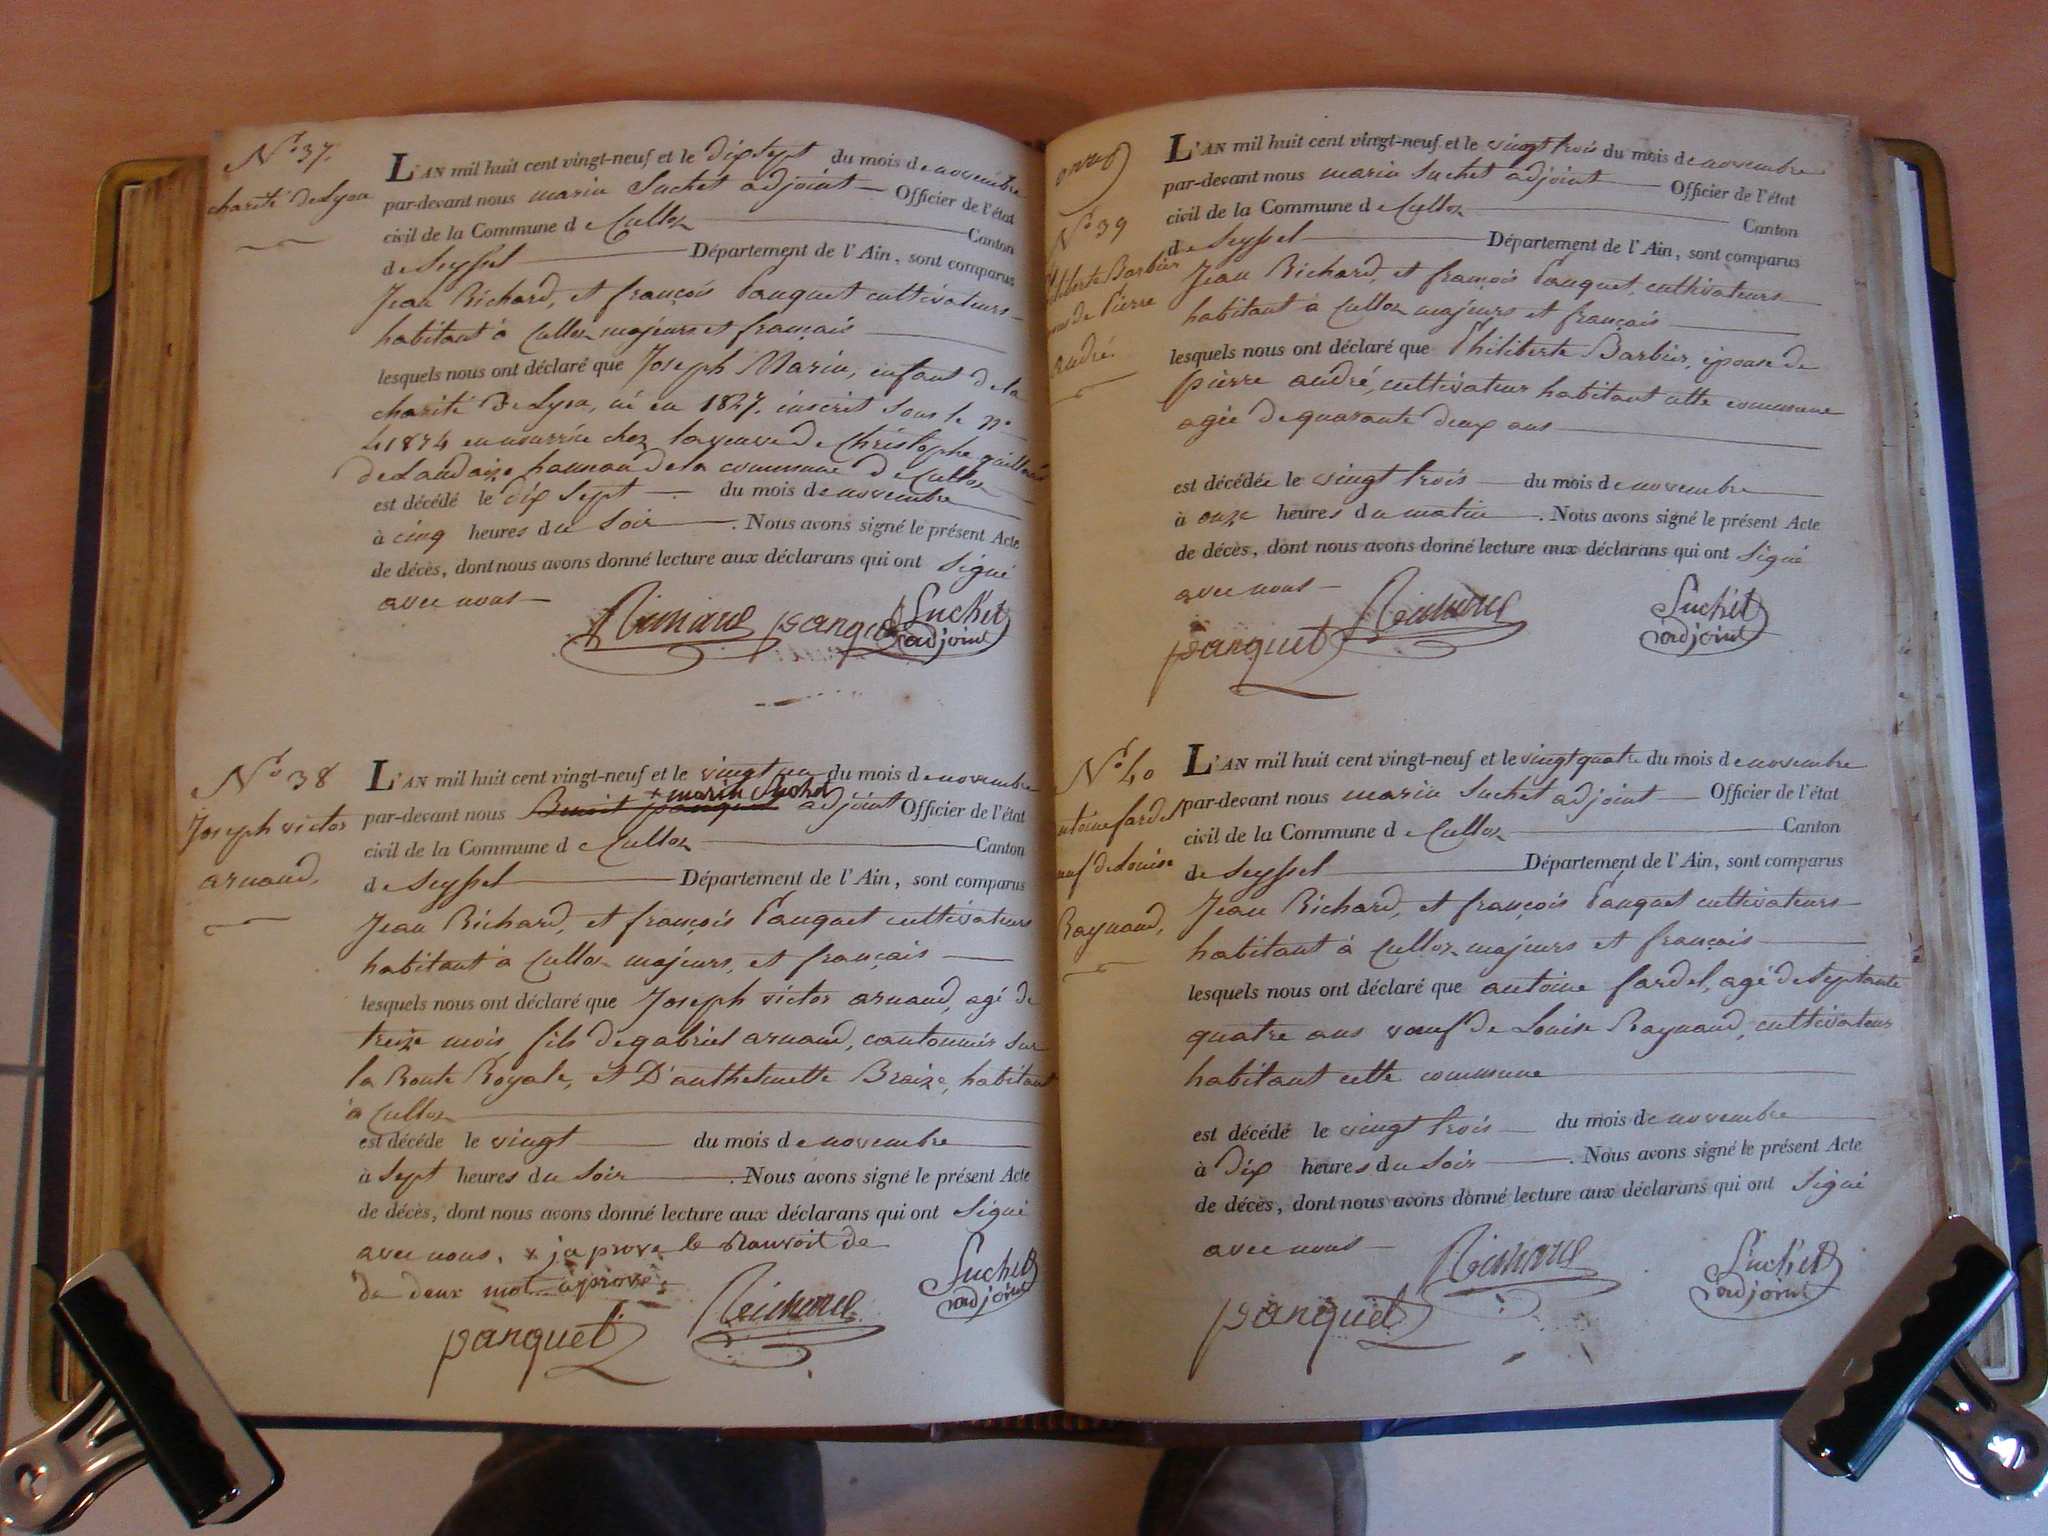 N.º 37.
charité de Lyon
L'AN mil huit cent vingt-neuf et le dix sept du mois de novembre
par-devant nous marin Suchet adjoint Officier de l'état
civil de la Commune de Culloz Canton
de Seyssel Département de l'Ain, sont comparus
Jean Richard, et françois Panquet cultivateurs
habitant à Culloz majeurs et français
lesquels nous ont déclaré que Joseph Marin, enfant de la
charité de Lyon, né en 1827. inscrit sous le n.º
41874 en nourrice chez la veuve de Christophe
de la commune de Culloz
est décédé le dix sept du mois de novembre
à cinq heures du soir. Nous avons signé le présent Acte
de décès, dont nous avons donné lecture aux déclarans qui ont signé
avec nous
Richard panquet Suchet
adjoint
N.º 38
Joseph victor
arnaud,
L'AN mil huit cent vingt-neuf et le vingt un du mois de novembre
+ marin Suchet
par-devant nous Benoit panquet adjoint Officier de l'état
civil de la Commune de Culloz Canton
de Seyssel Département de l'Ain, sont comparus
Jean Richard, et françois Panquet cultivateurs
habitant à Culloz majeurs, et français
lesquels nous ont déclaré que Joseph victor arnaud, agé de
treize mois, fils de gabriel arnaud, cantonnier sur
la Route Royale, et D'anthelmette Braize, habitant
à Culloz
est décédé le vingt du mois de novembre
à sept heures du soir. Nous avons signé le présent Acte
de décès, dont nous avons donné lecture aux déclarans qui ont signé
avec nous. + japrove le Ranvoit de
de deux mot aprové
panquet Richard Suchet
adjoint
N.º 39
Barbier
de Pierre
André.
L'AN mil huit cent vingt-neuf et le vingt trois du mois de novembre
par-devant nous marin Suchet adjoint Officier de l'état
civil de la Commune de Culloz Canton
de Seyssel Département de l'Ain, sont comparus
Jean Richard, et françois Panquet, cultivateurs
habitant à Culloz majeurs et français
lesquels nous ont déclaré que Philiberte Barbier, épouse de
pierre andré, cultivateur habitant cette commune
agée de quarante deux ans
est décédée le vingt trois du mois de novembre
à onze heures du matin. Nous avons signé le présent Acte
de décès, dont nous avons donné lecture aux déclarans qui ont signé
avec nous
panquet Richard Suchet
adjoint
N.º 40
antoine fardel
de Louise
Raynaud,
L'AN mil huit cent vingt-neuf et le vingt quatre du mois de novembre
par-devant nous marin Suchet adjoint Officier de l'état
civil de la Commune de Culloz Canton
de Seyssel Département de l'Ain, sont comparus
Jean Richard, et françois Panquet cultivateurs
habitant à Culloz majeurs et français
lesquels nous ont déclaré que antoine fardel, agé de septante
quatre ans veuf de Louise Raynaud, cultivateur
habitant cette commune
est décédé le vingt trois du mois de novembre
à dix heures du soir. Nous avons signé le présent Acte
de décès, dont nous avons donné lecture aux déclarans qui ont signé
avec nous
panquet Richard Suchet
adjoint